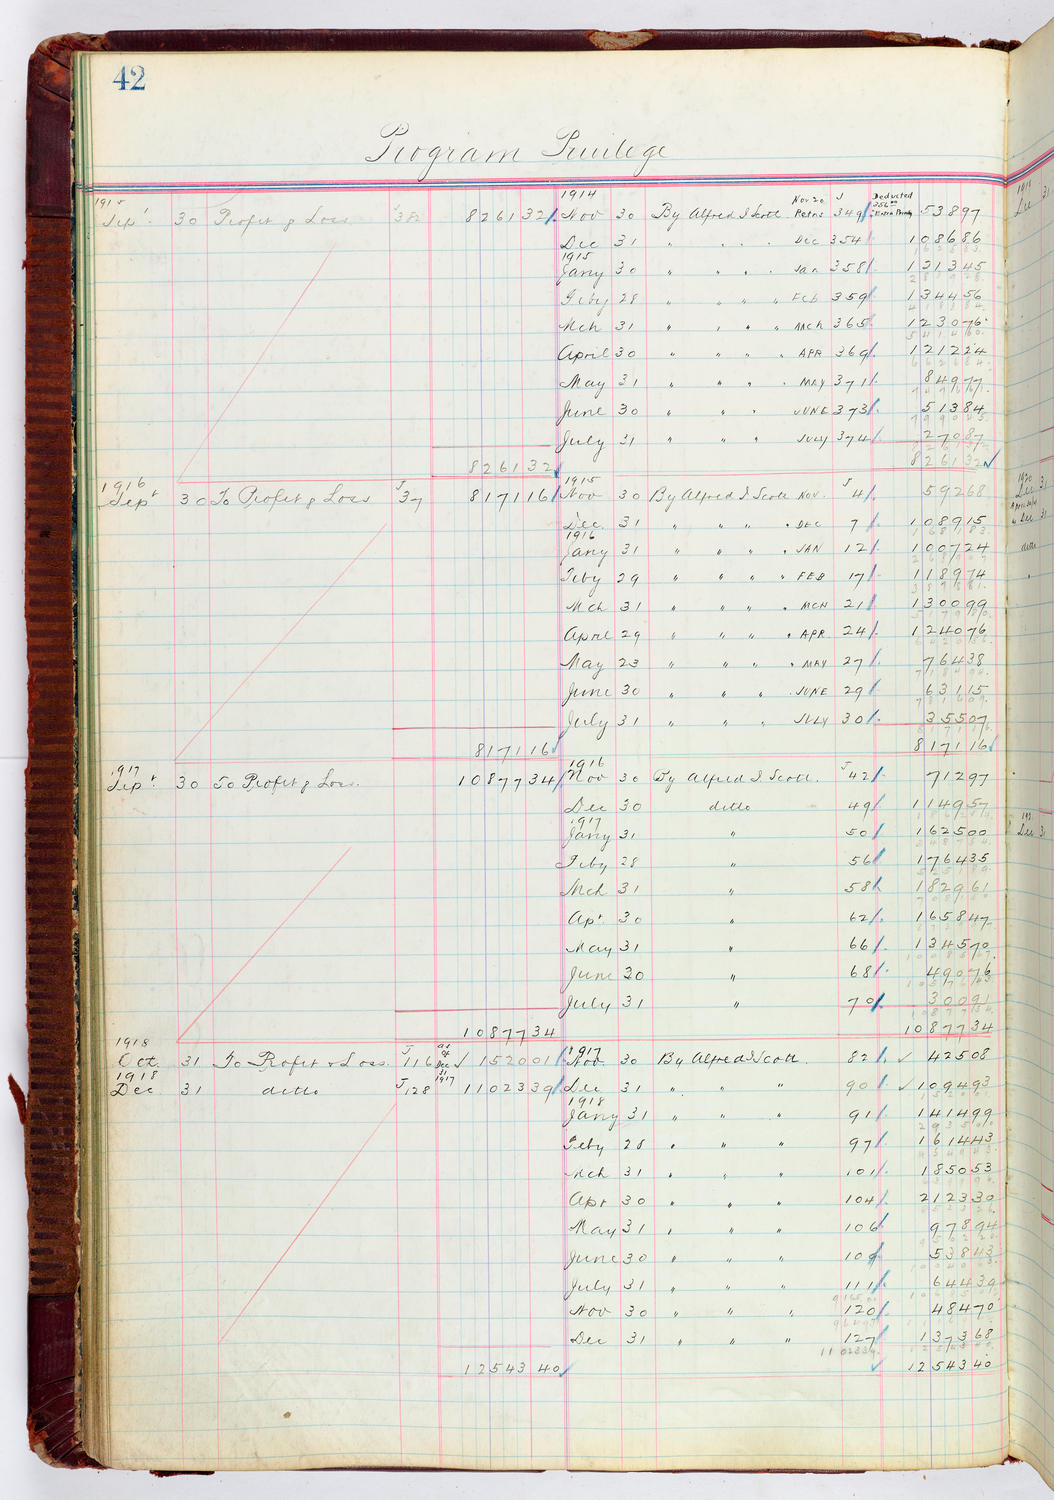 42
Program Privilege
1915 1914 Nov 20 J Deducted
Sept 30 Profit & Loss J 38 826132 Nov 30 By Alfred I Scott Retns 349 356 00 Extra Printg 53897
Dec 31 " " " " Dec 354 108686
1915
Jany 30 " " " " Jan 358 131345
Feby 28 " " " " FEB 359 134456
Mch 31 " " " " MCH 365 123076
April 30 " " " " APR 369 121224
May 31 " " " " MAY 371 84977
June 30 " " " JUNE 373 51384
July 31 " " " JULY 374 27087
826132 826132
1916 1915
Sept 30 To Profit & Loss J 37 817116 Nov 30 By Alfred I Scott Nov. J 4 59268
Dec. 31 " " " " DEC 7 108915
1916
Jany 31 " " " " JAN 12 100724
Feby 29 " " " " FEB 17 118974
Mch 31 " " " " MCH 21 130099
April 29 " " " " APR. 24 124076
May 23 " " " " MAY 27 76438
June 30 " " " JUNE 29 63115
July 31 " " " JULY 30 35507
817116 817116
1917 1916
Sept 30 To Profit & Loss. 1087734 Nov 30 By Alfred I Scott. J 42 71297
Dec 30 ditto 49 114957
1917
Jany 31 " 50 162500
Feby 28 " 56 176435
Mch 31 " 58 182961
Apr 30 " 62 165847
May 31 " 66 134570
June 30 " 68 49076
July 31 " 70 30091
1087734 1087734
1918 1917
Oct. 31 To Profit & Loss. J 116 as of Dec 31 1917 152001 Nov. 30 By Alfred I Scott. 82 42508
1918
Dec. 31 ditto J 128 1102339 Dec 31 " " " 90 109493
1918
Jany 31 " " " 91 141499
Feby 28 " " " 97 161443
Mch 31 " " " 101 185053
Apr 30 " " " 104 212330
May 31 " " " 106 97894
June 30 " " " 109 53843
July 31 " " " 111 64439
Nov 30 " " " 120 48470
Dec 31 " " " 127 137368
1102339
1254340 1254340